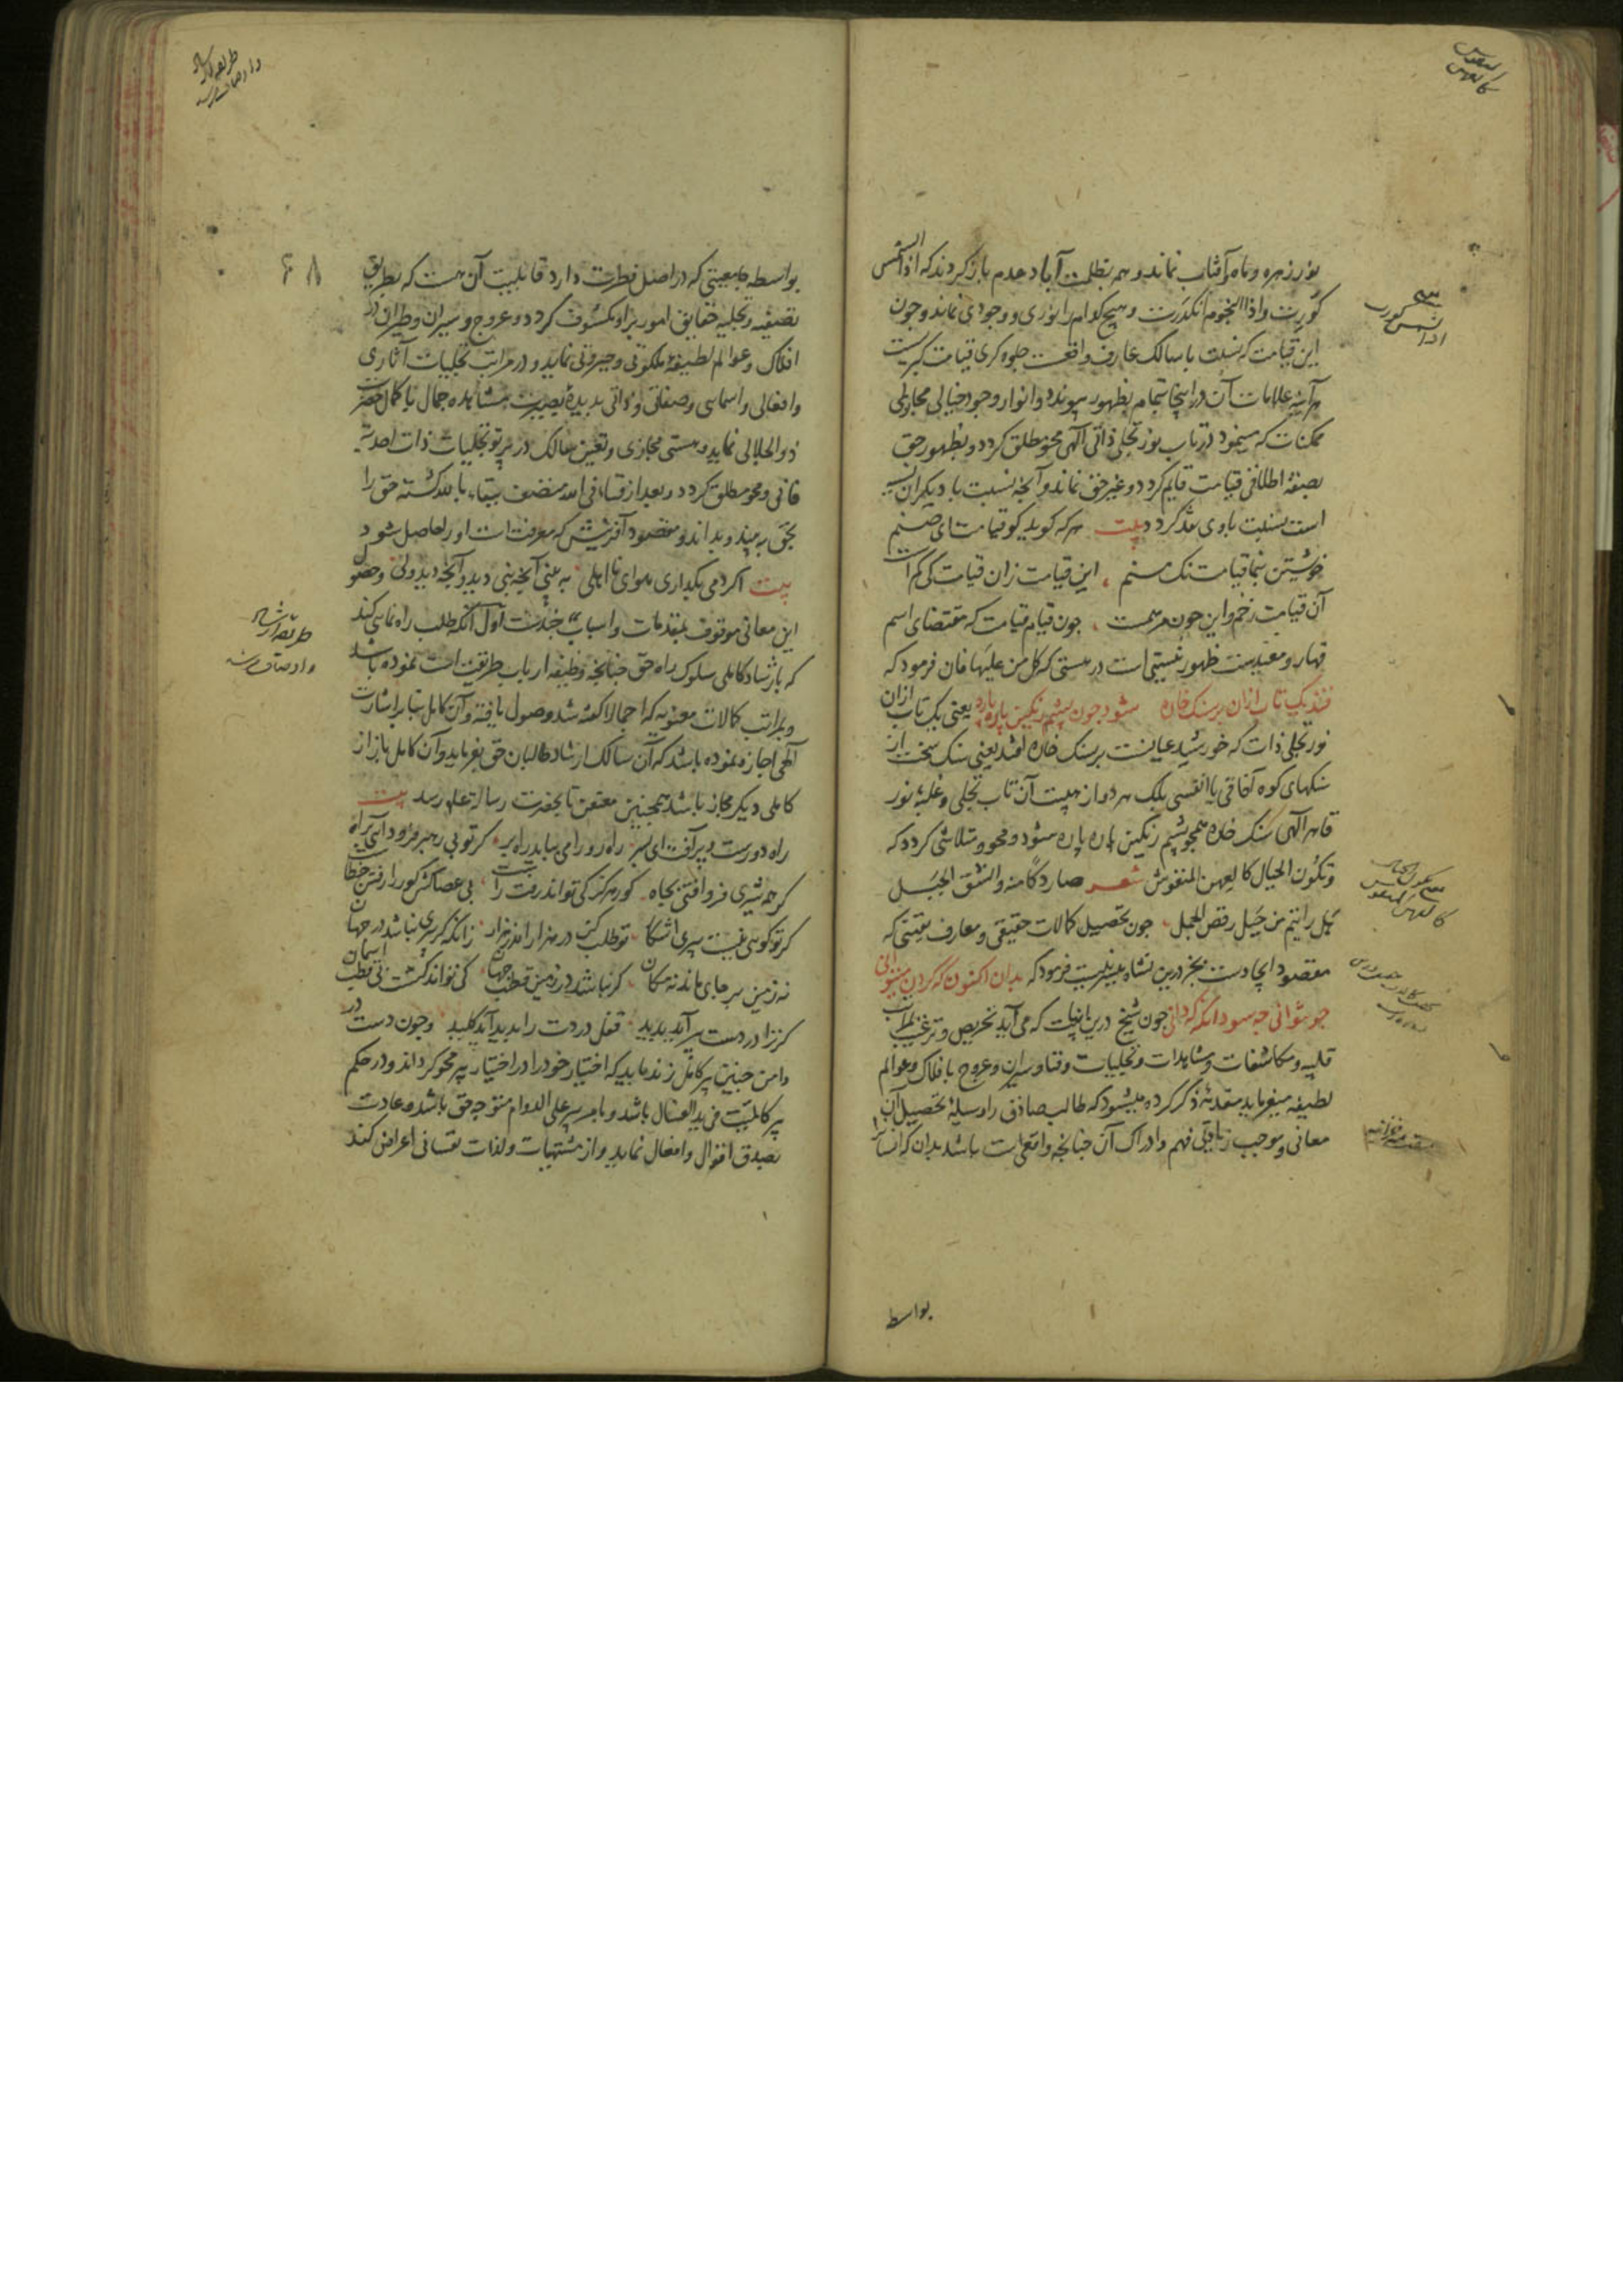 نور زهره و ماه و آفتاب نماند و همه بظلمت آباد عدم باز کردند که اذا الشمس
کورت و اذا النجوم انکدرت و هیچ کدام را نوری و وجودی نماند و چون
این قیامت که نسبت با سالک عارف واقعست جلوه کری قیامت کبریست
هر آینه علامات آن در اینجا بتمام بظهور پیوندد و انوار وجود خیالی مجازی
ممکنات که مینمود در تاب نور تجلی ذاتی الهی محو مطلق کردد و بظهور حق
بصفة اطلاقی قیامت قایم کردد و غیر حق نماند و آنچه نسبت با دیکران نسیه
است بنسبت با وی نقد کردد بیت هر که کوید کو قیامت ای صنم
خویشتن بنما قیامت نک منم این قیامت زان قیامت کی کم است
آن قیامت زخم و این چون مرهمست چون قیام قیامت که مقتضای اسم
قهار و معیدست ظهور نیستی است در هستی که کل من علیها فان فرمود که
فتد یک تاب ازان بر سنک خاره شود چون پشم رنکین پاره پاره یعنی یک تاب ازان
نور تجلی ذات که خورشید عیانست بر سنک خاره افتد یعنی سنک سخت از
سنکهای کوه آفاقی یا انفسی بلک هر دو از هیبت آن تاب تجلی و غلبهٔ نور
قاهر الهی سنک خاره همچو پشم رنکین پاره پاره شود و محو و متلاشی کردد که
و تکون الجبال کالعهن المنفوش شعر صار دکا منه و انشق الجبل
هل رایتم من جبل رقص الجمل چون تحصیل کمالات حقیقی و معارف یقینی که
مقصود ایجادست بجز درین نشاه میسر نیست فرمود که بدان اکنون که کردن میتوانی
چو نتوانی چه سود آنکه که دانی چون شیخ درین ابیات که می آید تحریص و ترغیب بمراتب
قلبیه و مکاشفات و مشاهدات و تجلیات و فنا و سیران و عروج بافلاک و عوالم
لطیفه میفرماید مقدمهٔ ذکر کرده میشود که طالب صادق را وسیلهٔ تحصیل آن
معانی و موجب زیادتی فهم و ادراک آن چنانچه واقعی است باشد بدان که انسان
اذا الشمس کورت
تکون الجبال
کالعهن المنفوش
بواسطه
۶۸
بواسطه جامعیتی که در اصل فطرت دارد قابلیت آن هست که بطریق
تصفیه و تجلیه حقایق امور برو مکشوف کردد و عروج و سیران و طیران در
افلاک و عوالم لطیفهٔ ملکوتی و جبروتی نماید و در مراتب تجلیات آثاری
و افعالی و اسمایی و صفاتی و ذاتی بدیدهٔ بصیرت مشاهده جمال با کمال حضرت
ذو الجلالی نماید و هستی مجازی و تعین سالک در پرتو تجلیات ذات احدیت
فانی و محو مطلق کردد و بعد از فناء فی الله متصف ببقاء بالله کشته حق را
بحق به بیند و بداند و مقصود آفرینش که معرفت است او را حاصل شود
بیت اکر دمی بکذاری هوای نا اهلی به بینی آنچه نبی دید و آنچه دید ولی و حصول
این معانی موقوف بمقدمات و اسباب چندست اول آنکه طلب راه نمایی کند
که بارشاد کاملی سلوک راه حق چنانچه وظیفهٔ ارباب طریقت است نموده باشد
و بمراتب کمالات معنویه که اجمالا کفته شد وصول یافته و آن کامل بنابر اشارت
الهی اجازه نموده باشد که آن سالک ارشاد طالبان حق بفرماید و آن کامل باز از
کاملی دیکر مجاز باشد همچنین معنعن تا بحضرت رسالة علم رسد بیت
راه دورست و پر آفت ای پسر راه رو را می بباید راه بر کر تو بی رهبر فرود آیی براه
کر همه شیری فرو افتی بچاه کور هرکز کی تواند رفت راست بی عصاکش کور را رفتن خطاست
کر تو کویی نیست پیری آشکار تو طلب کن در هزار اندر هزار زانکه کر پیری نباشد در جهان
نه زمین بر جای ماند نه مکان کر نباشد در زمین قطب جهان کی تواند کشت بی قطب آسمان
کر ترا دردست پیر آید پدید قفل دردت را پدید آید کلید و چون دست در
دامن چنین پیر کامل زند باید که اختیار خود را در اختیار پیر محو کرداند و در حکم
پیر کالمیت فی ید الغسال باشد و بامر پیر علی الدوام متوجه حق باشد و عادت
بصدق اقوال و افعال نماید و از مشتهیات و لذات نفسانی اعراض کند
طریقه ارشاد